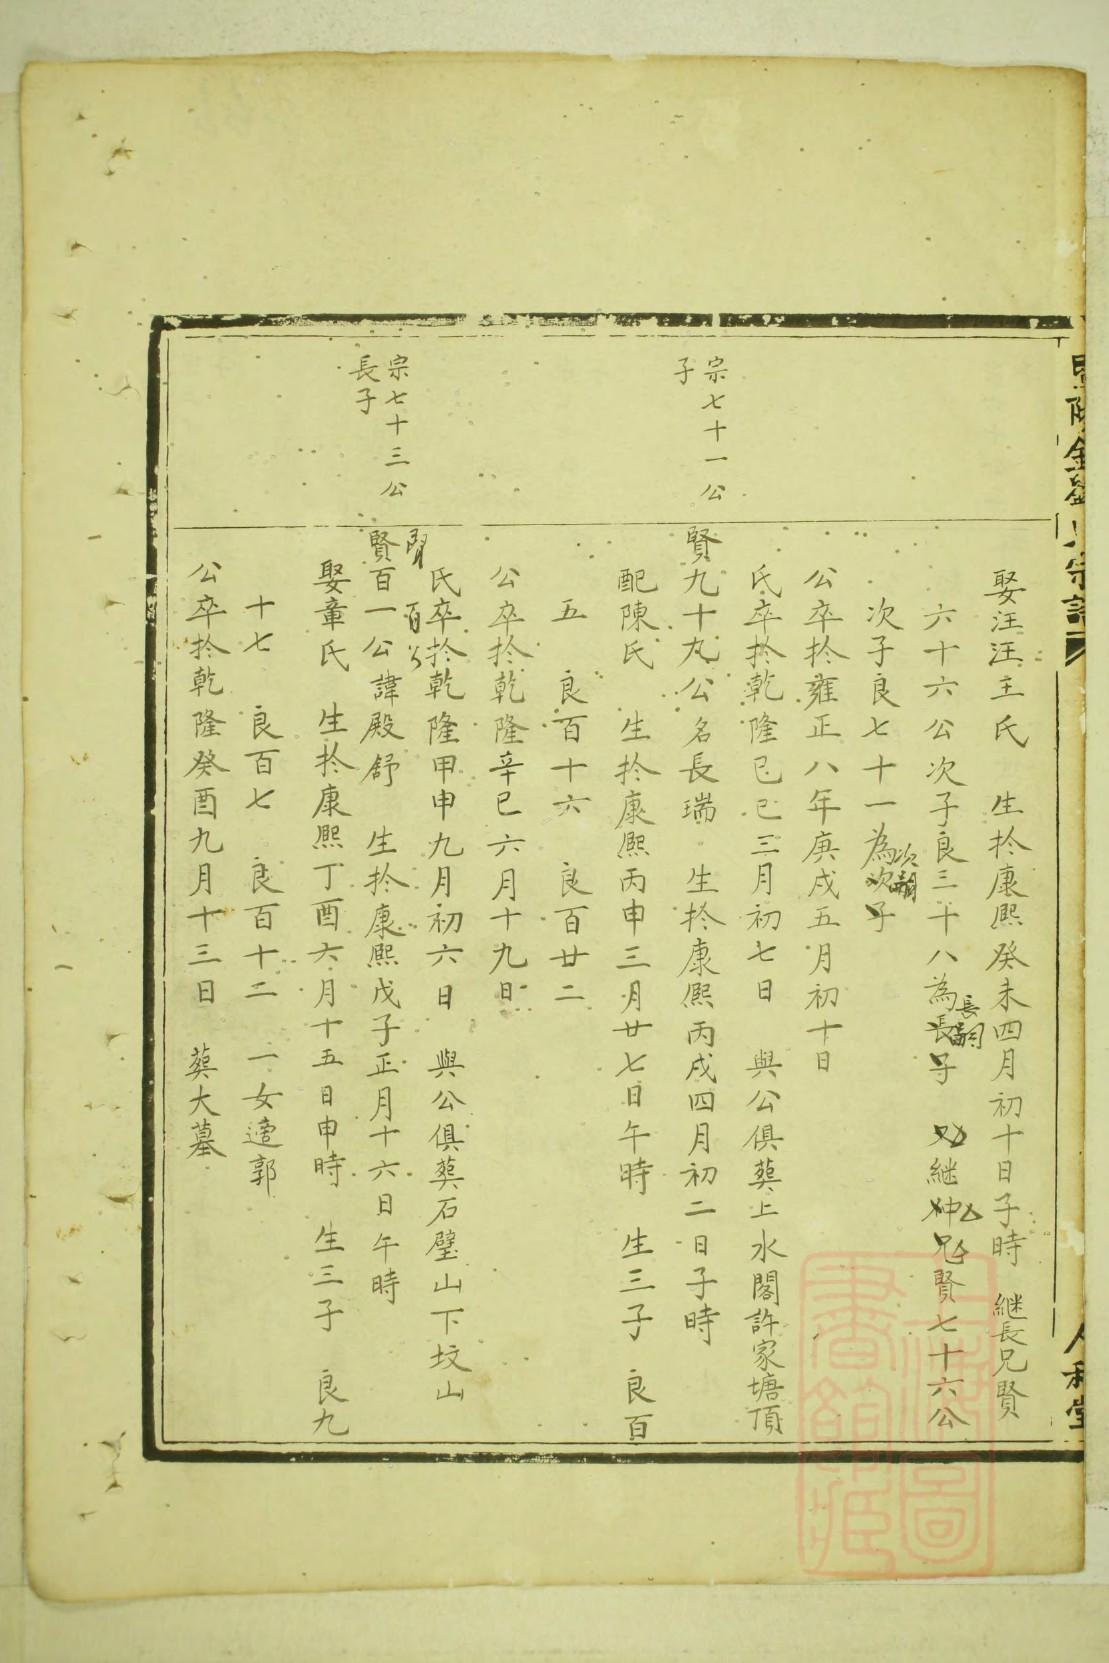 娶汪汪王氏　生扵康熙癸未四月初十日子時　継長兄賢
六十六公次子良三十八為長子　継仲兄賢七十六公
長嗣
次子良七十一為次子
次嗣
公卒扵雍正八年庚戌五月初十日
氏卒扵乾隆已巳三月初七日　與公俱葬上水閣許家塘頂
宗七十一公
子
賢九十九公名長瑞　生扵康熙丙戌四月初二日子時
配陳氏　生扵康熙丙申三月廿七日午時　生三子　良百
五　良百十六　良百廿二
公卒扵乾隆辛巳六月十九日
氏卒扵乾隆甲申九月初六日　與公俱葬石壁山下坟山
宗七十三公
長子
賢百一公諱殿舒　生扵康熙戊子正月十六日午時
娶章氏　生扵康熙丁酉六月十五日申時　生三子　良九
十七　良百七　良百十二　一女適郭
公卒扵乾隆癸酉九月十三日　葬大墓